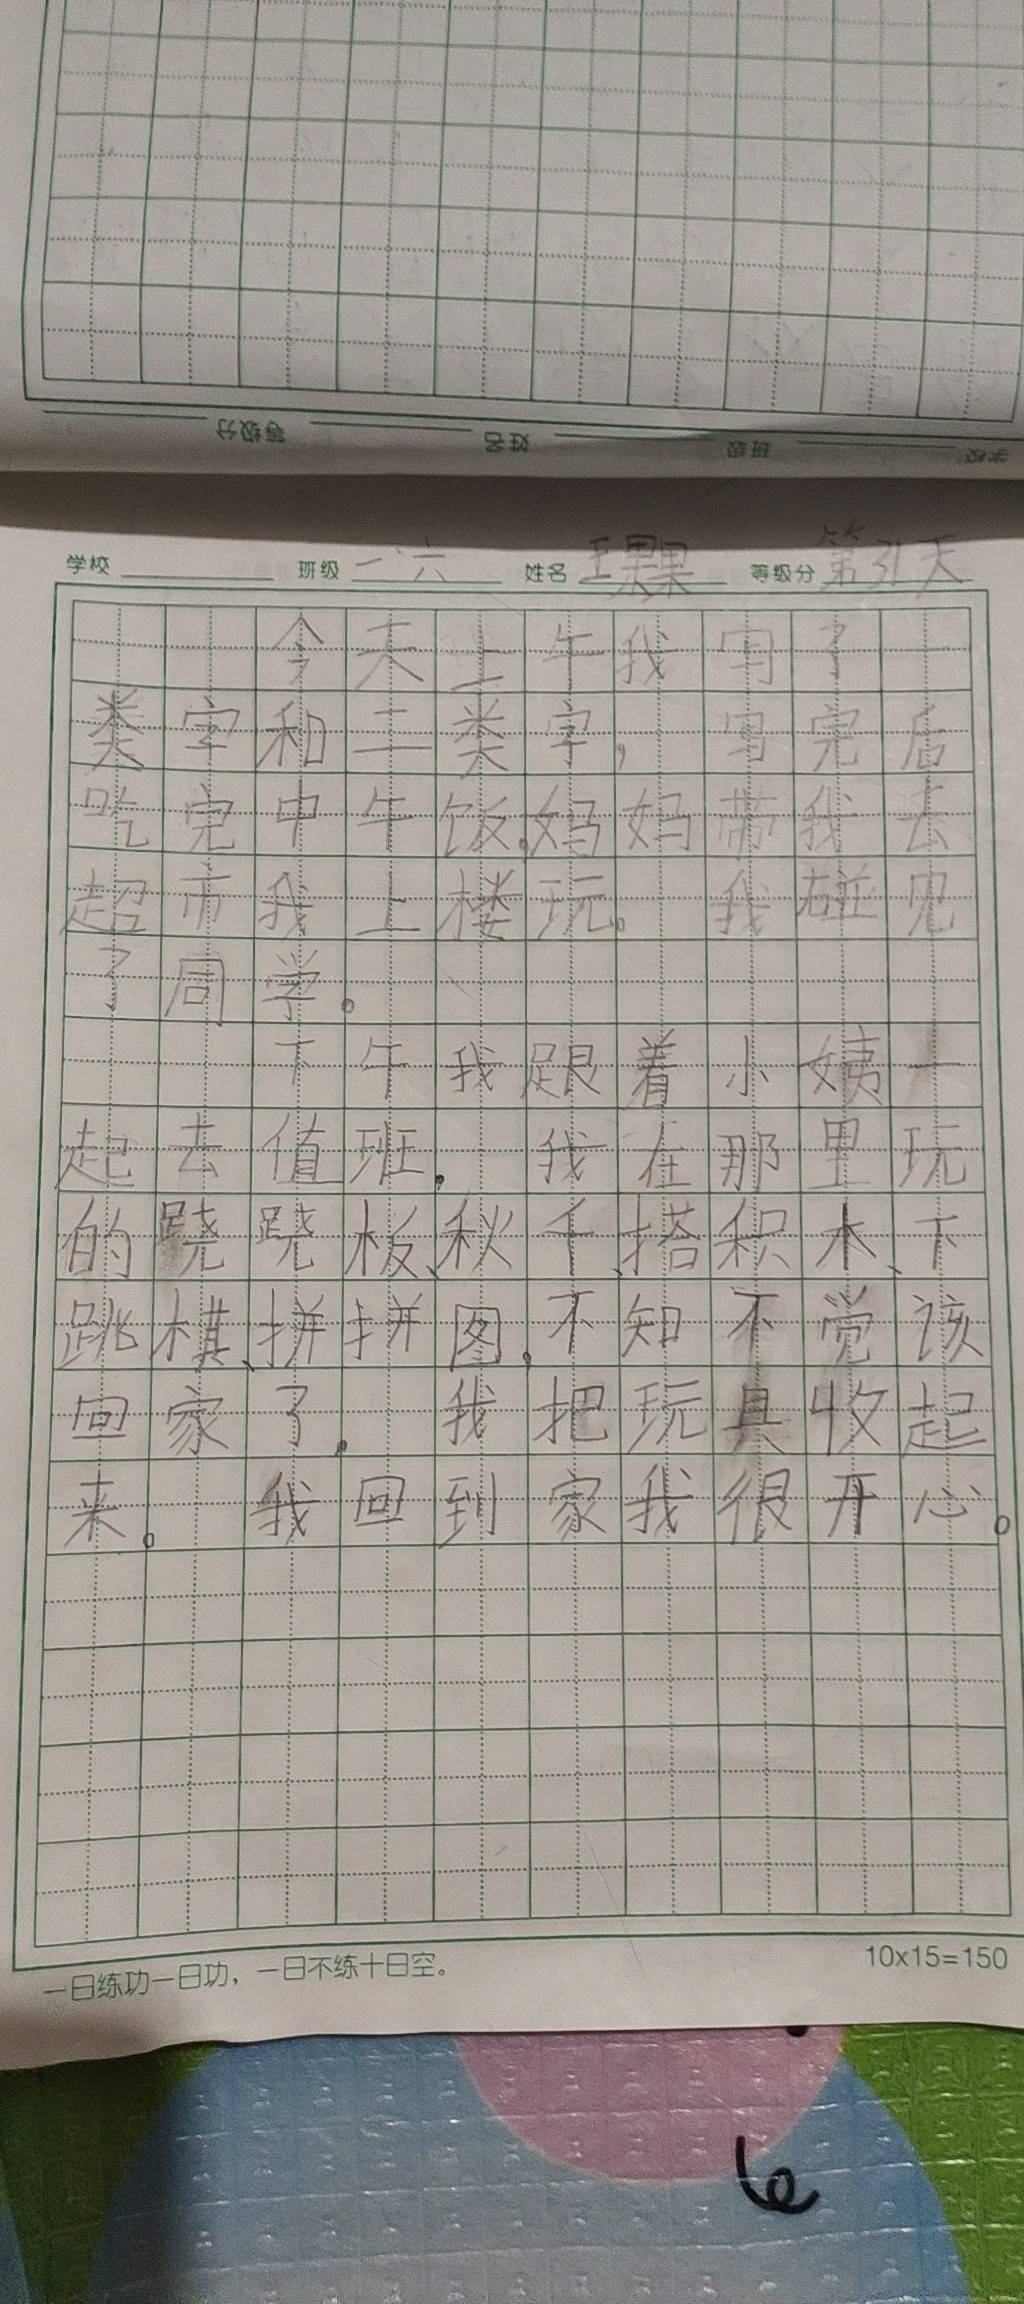 等级分 姓名 班级 学校
学校 班级 一六 姓名 王果果 等级分 第31天
今天上午我写了一
类字和二类字，写完后
吃完中午饭。妈妈带我去
超市我上楼玩。我碰见
了同学。
下午我跟着小姨一
起去值班。我在那里玩
的跷跷板、秋千、搭积木、下
跳棋、拼拼图，不知不觉该
回家了。我把玩具收起
来。我回到家我很开心。
一日练功一日功，一日不练十日空。
10x15=150